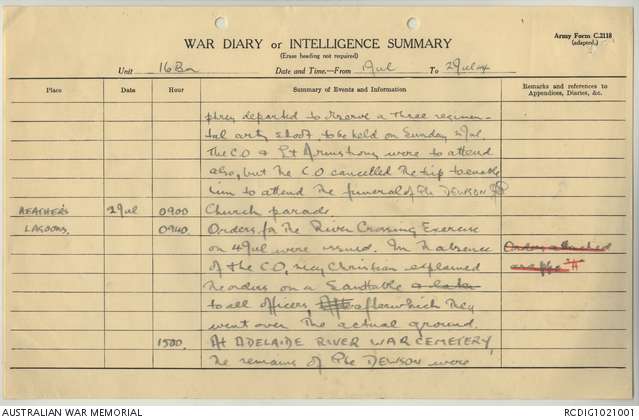 Army Form C.2118
(adapted.)
WAR DIARY or INTELLIGENCE SUMMARY
(Erase heading not required)
Unit 16 Bn Date and Time.—From 1 Jul To 2 Jul 44
Place Date Hour Summary of Events and Information Remarks and references to Appendices, Diaries, &c.
phrey departed to observe a three regimen-
tal arty shoot to be held on Sunday 2 Jul.
The C.O & Lt Armstrong were to attend
also, but the C.O cancelled the trip to enable
him to attend the funeral of Pte DEWSON
HEATHER'S 2 Jul 0900 Church parade.
LAGOON. 0940 Orders for the River Crossing Exercise
on 4 Jul were issued. In the absence Orders attached
of the CO, Maj Christian explained as App "A"
the orders on a Sandtable
to all officers, after which they
went over the actual ground.
1500. At ADELAIDE RIVER WAR CEMETERY,
the remains of Pte DEWSON were
AUSTRALIAN WAR MEMORIAL RCDIG1021001